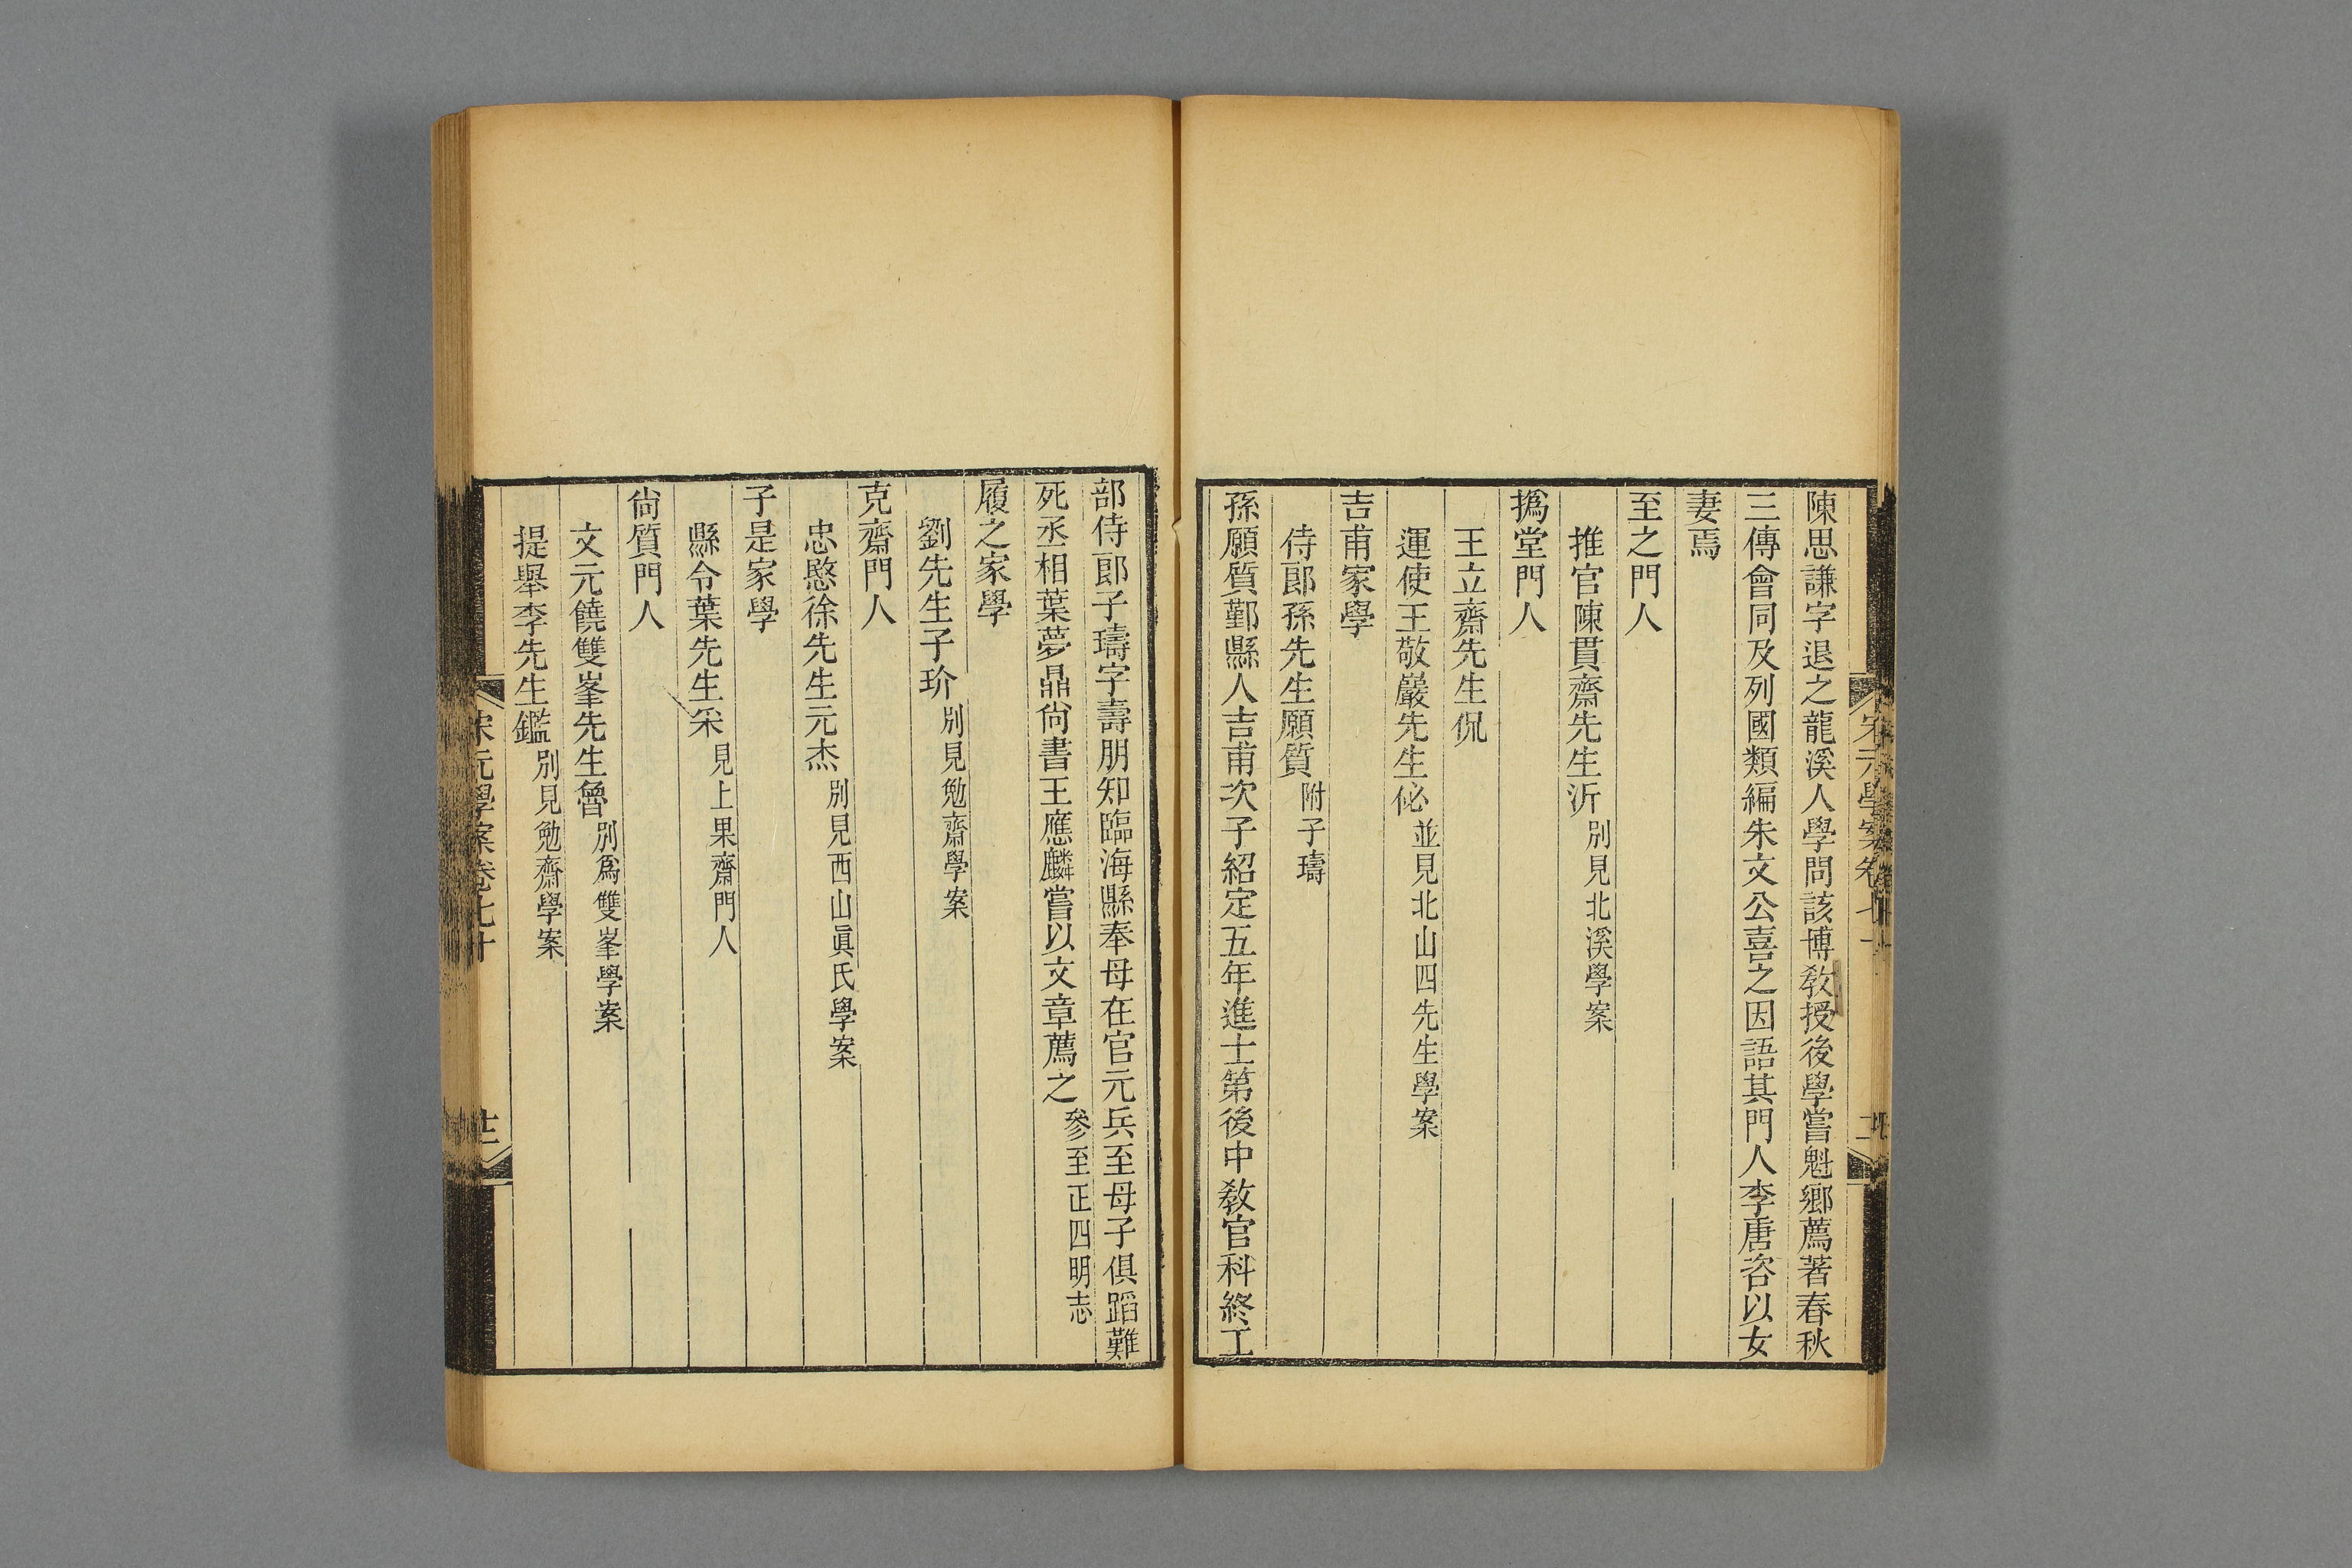 陳思謙字退之龍溪人學問該博敎授後學嘗魁鄉薦著春秋
三傳會同及列國類編朱文公喜之因語其門人李唐咨以女
妻焉
至之門人
推官陳貫齋先生沂別見北溪學案
撝堂門人
王立齋先生侃
運使王敬巖先生佖並見北山四先生學案
吉甫家學
侍郞孫先生願質附子璹
孫願質鄞縣人吉甫次子紹定五年進士第後中敎官科終工
部侍郞子璹字壽朋知臨海縣奉母在官元兵至母子俱蹈難
死丞相葉夢鼎尙書王應麟嘗以文章薦之參至正四明志
履之家學
劉先生子玠別見勉齋學案
克齋門人
忠愍徐先生元杰別見西山眞氏學案
子是家學
縣令葉先生采見上果齋門人
尙質門人
文元饒雙峯先生魯別爲雙峯學案
提舉李先生鑑別見勉齋學案
宋元學案卷七十